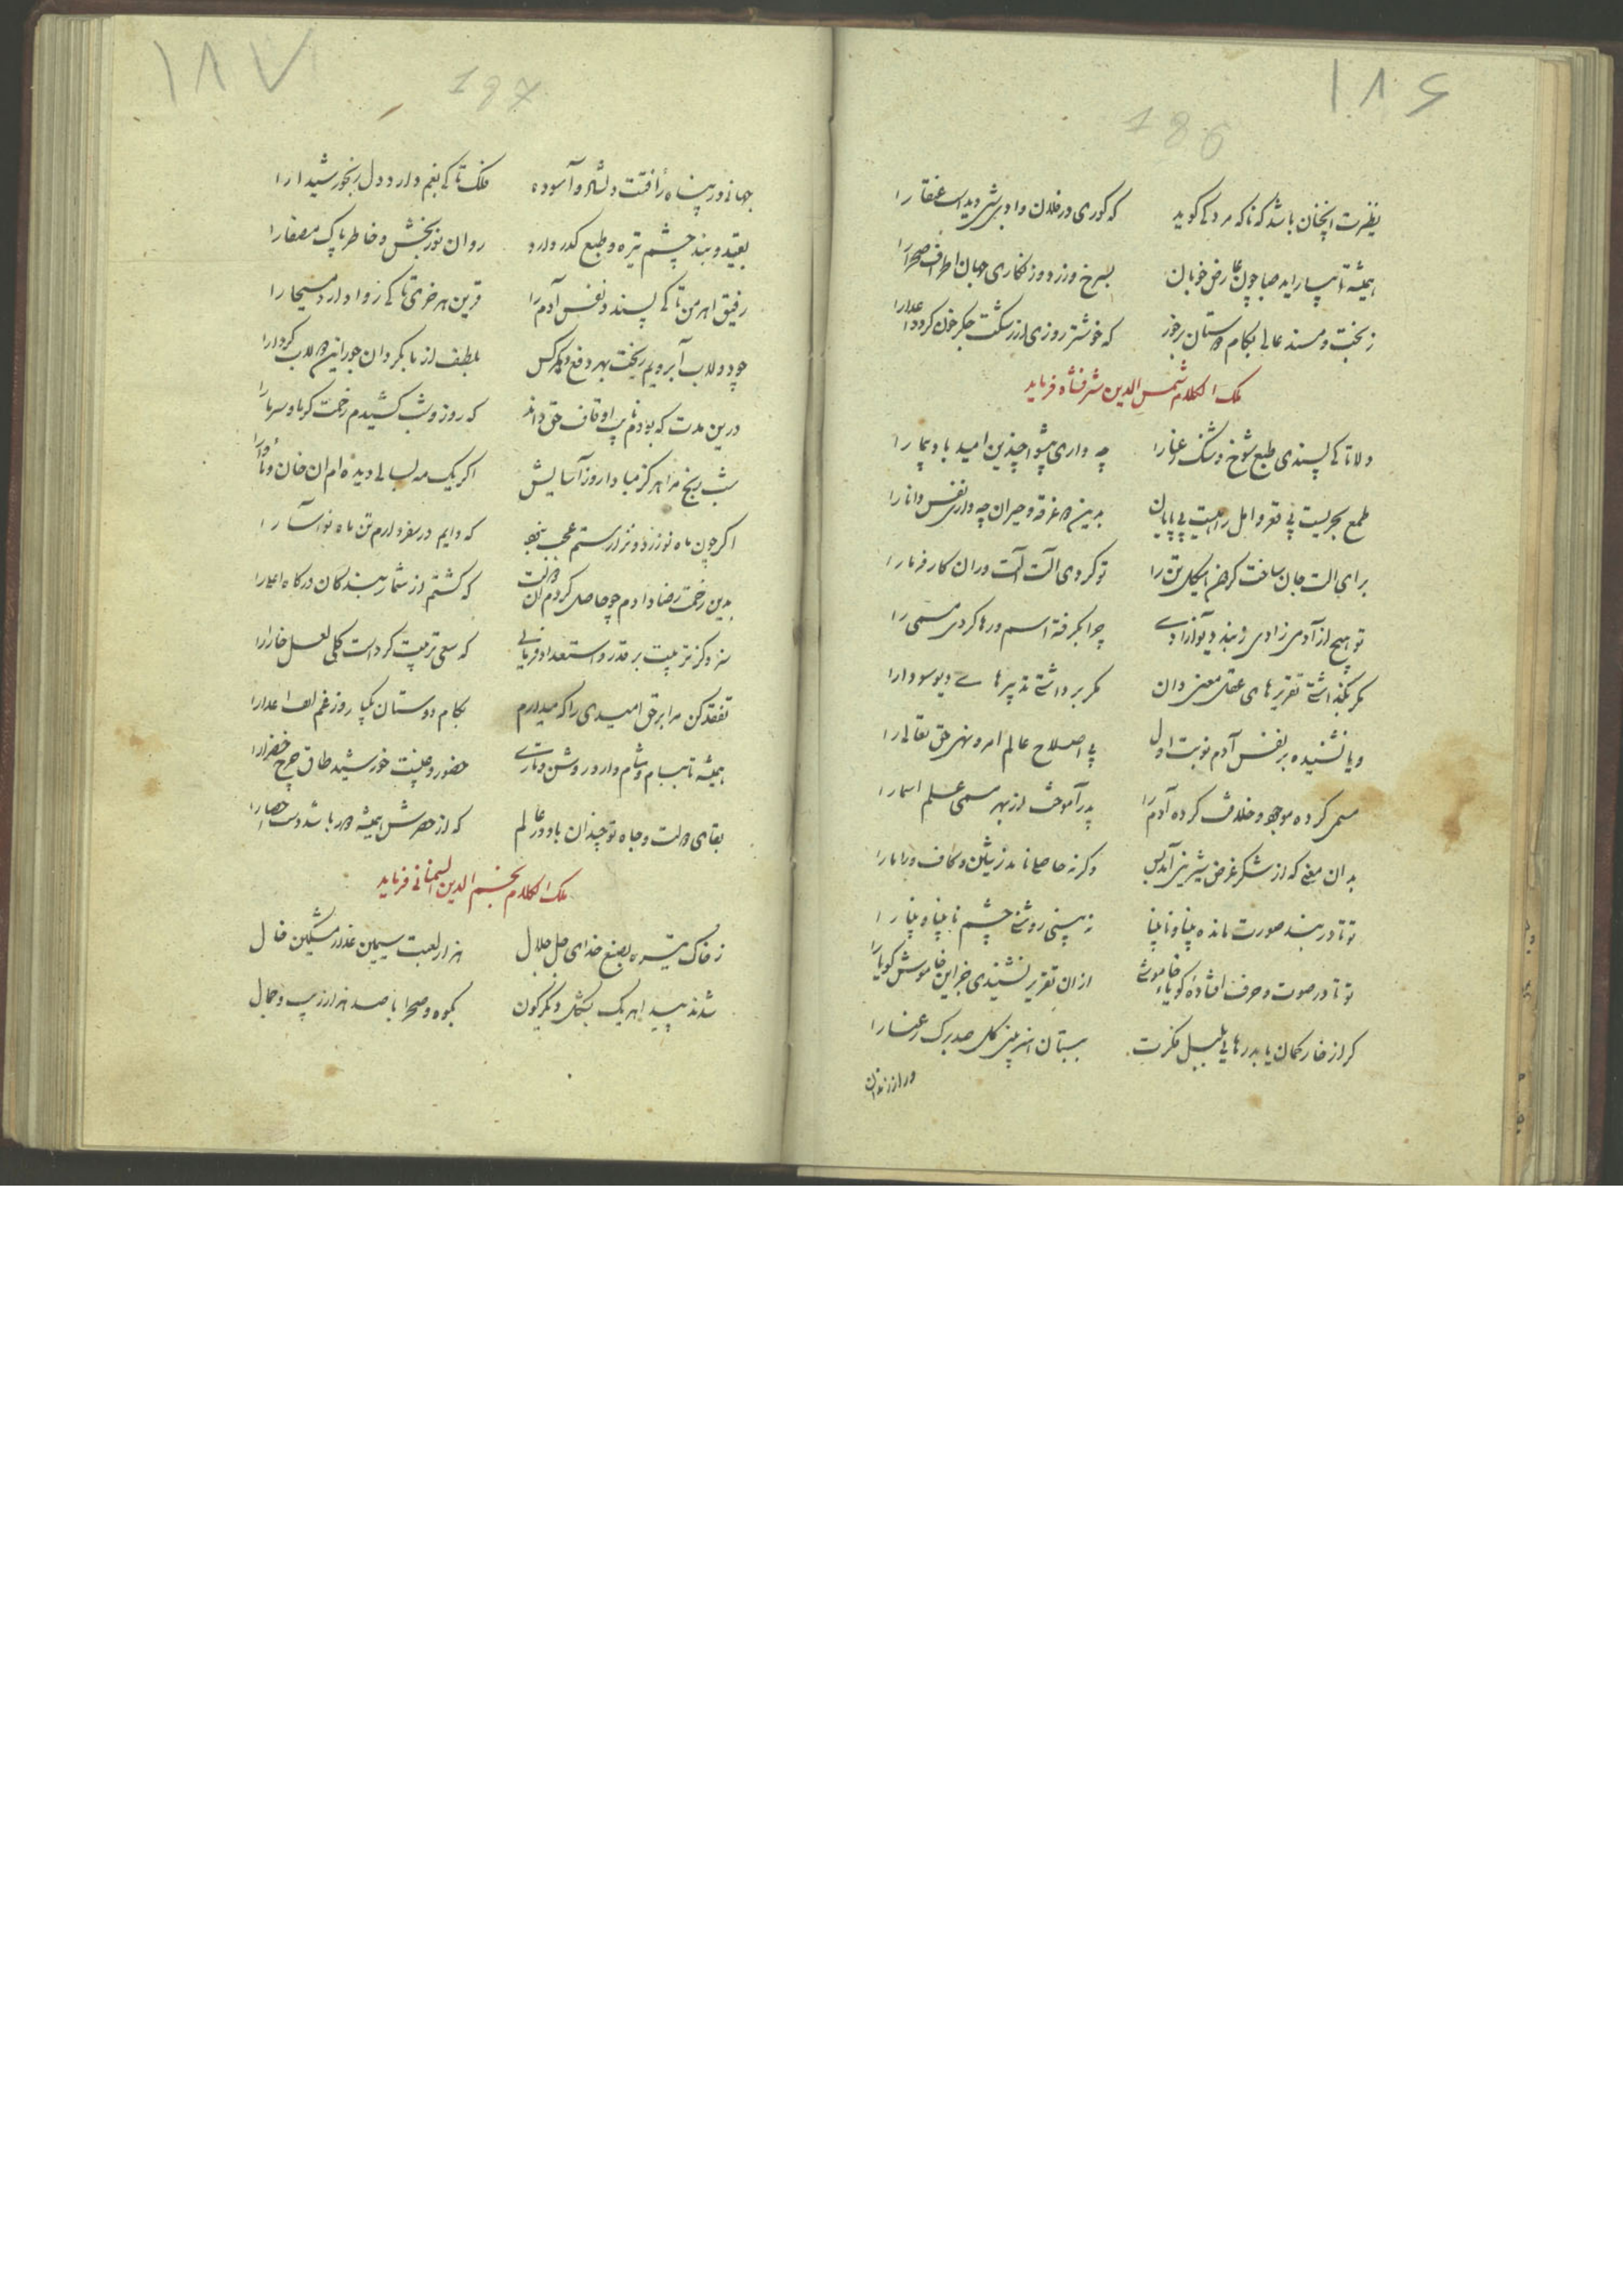 ۱۸۶
186
نظیرت آنچنان باشد که ناکه مردکی کوید که کوری در فلان وادی بشب دیداست عنقا را
همیشه تا بیاراید صبا چون عارض خوبان بسرخ وزرد وزنکاری جهان اطراف صحرا را
ز بخت و مسند عالی بکام دوستان برخور که خوشتر روزی از رشکت جکر خون کردد اعدا را
ملک الکلام شمس الدین شرفشاه فرماید
دلا تا کی پسندی طبع شوخ و شنک رعنا را چه داری پیشوا چندین امید باد پیما را
طمع بحریست بی قعر و امل راهیست بی پایان بدین در غرقه و حیران چه داری نفس دانا را
برای الت جان ساخت کردون هیکل تن را تو کردی الت آلت دران کار فرما را
تو هیچ از آدمی زادی ز بند دیو آزادی چرا بکرفته اسم و رها کردی مسمی را
مکر بکذاشتی تقریرهای عقل معنی دان مکر برداشتی تدبیرهای دیو سودا را
و یا نشنیده بر نفس آدم نوبت اول پی اصلاح عالم امر و نهی حق تعالی را
مسمی کرده موجود و خلافت کرده آدم را پدر آموخت از بهر مسمی علم اسما را
بدان معنی که از شکر غرض شیرینی آمد بس وکرنه حاصلی ناید ز شین و کاف و را با را
تو تا در بند صورت مانده بینا و نابینا نه بینی روشنی چشم نابینا و بینا را
تو تا در صوت و حرف افتاده کویا و خاموشی ازان تقریر نشنیدی خبر این خاموش کویا را
کر از خار کمان یابد رهایی بلبل فکرت ببستان اندر بینی کل صد برک رعنا را
در از زندان
۱۸۷
187
جهانی در پناه رأفتت دلشاد و آسوده فلک تا کی بغم دارد دل رنجور شیدا را
بقید و بند چشم تیره و طبع کدر دارد روان نوربخش و خاطر پاک مصفا را
رفیق اهرمن تا کی پسندد نفس آدم را قرین هر خری تا کی روا دارد مسیحا را
چو دولاب آبرویم ریخت بهر دفع هر کس بلطف از ما بکردان جور این دولاب کردا را
درین مدت که بودم نایب اوقاف حق داند که روز و شب کشیدم زحمت کرما و سرما را
شب رنج مرا هرکز مبادا روز آسایش اکر یک مه بسالی دیده‌ام ان خان و مأوا را
اکر چون ماه نو زرد و نزارستم عجب نبود که دایم در سفر دارم تن ماه نو آسا را
بدین زحمت رضا دادم چو حاصل کردم ان دولت که کشتم از شمار بندکان درکاه اعلا را
سزد کز تربیت بر قدر و استعداد فرمایی که سعی تربیت کرد است کلی لعل خارا را
تفقد کن مرا برحق امیدی را که میدارم بکام دوستان یکباره روز غم لقب اعدا را
همیشه تا ببام و شام دارد روشن و تاری حضور و غیبت خورشید طاق چرخ خضرا را
بقای دولت و جاه تو چندان باد در عالم که از حصرش همیشه در باشد دست احصا را
ملک الکلام نجم الدین السمنانی فرماید
ز خاک تیره بصنع خدای جل جلال هزار لعبت سیمین عذار مشکین خال
شدند پیدا هر یک بشکل دیکرکون بکوه و صحرا با صد هزار زیب و جمال